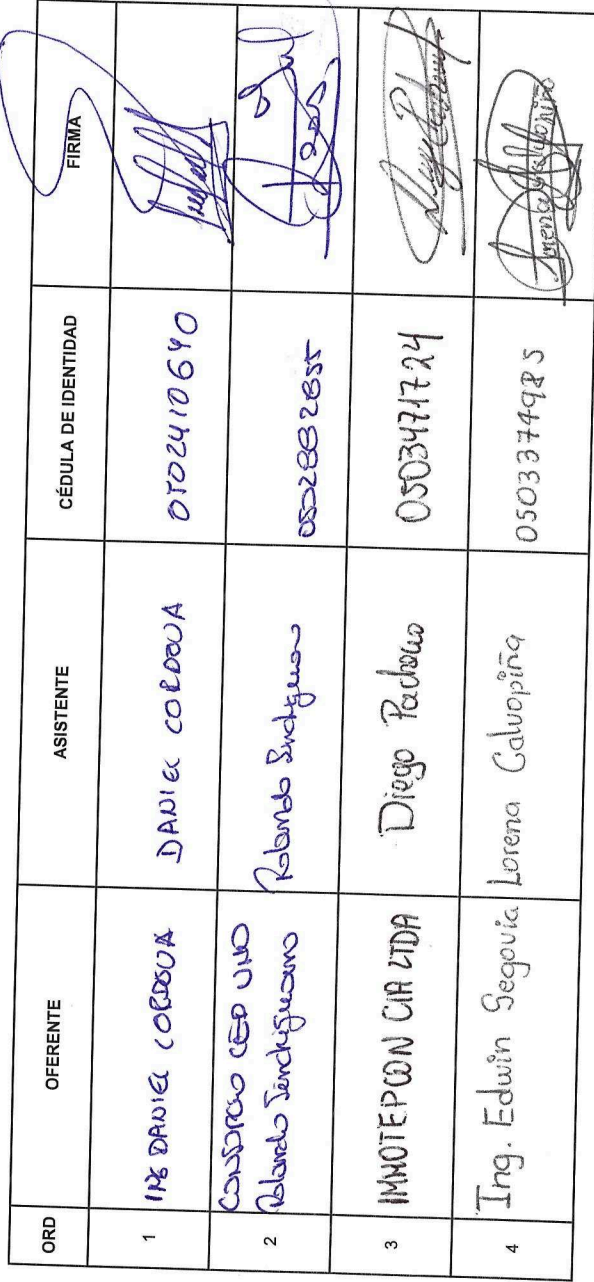 ORD OFERENTE ASISTENTE CÉDULA DE IDENTIDAD FIRMA
1 ING DANIEL CORDOVA DANIEL CORDOVA 0502410640
2 CONSORCIO CEO UNO
Rolando Sinchiguano Rolando Sinchiguano 0502882855
3 INMOTEPCON CIA LTDA Diego Pacheco 0503471724
4 Ing. Edwin Segovia Lorena Calvopiña 0503374985 Lorena Calvopiña